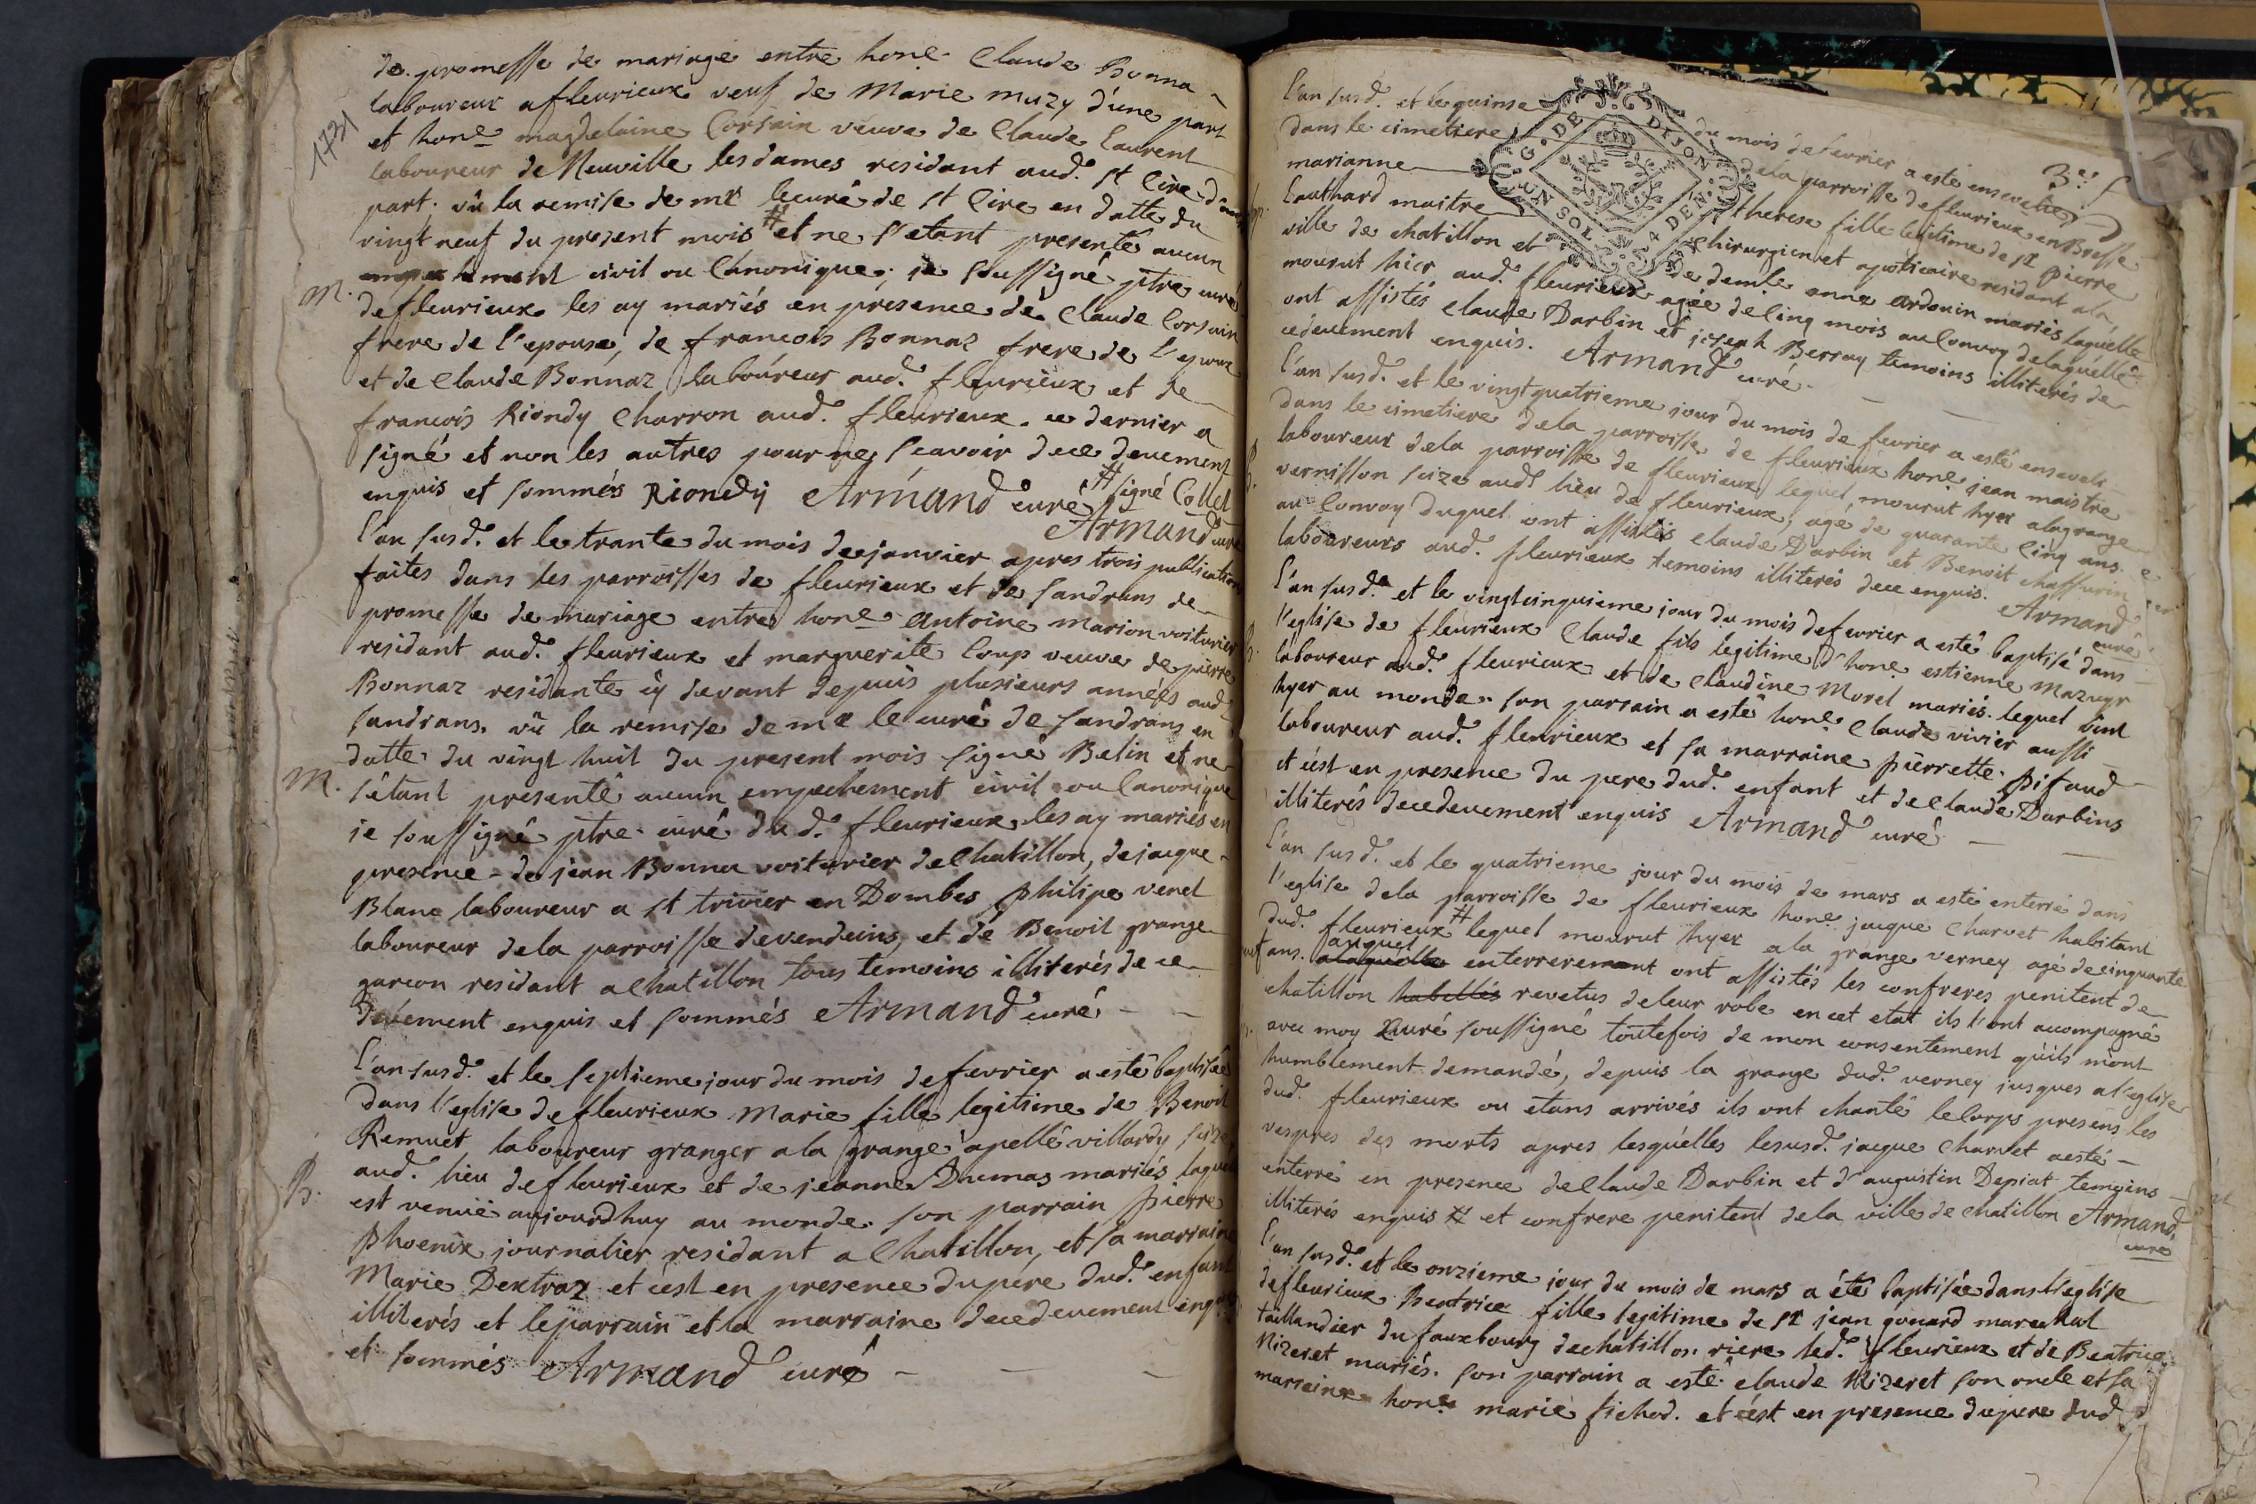 1731
de promesse de mariage entre hone. Claude Bonna
laboureur a fleurieux veuf de Marie muzy d'une part
et hone magdelaine Corsain veuve de Claude Laurent
laboureur de Neuville les dames residant aud. st Cire d'autre
part; vû la remise de mr le curé de st Cire en datte du
vingt neuf du present mois # et ne s'etant presenté aucun
empechement civil ou Canonique; je soussigné ptre curé
M.
de fleurieux les ay mariés en presence de Claude Corsain
frere de l'epouse, de francois Bonnaz frere de l'epoux
et de Claude Bonnaz laboureur aud. fleurieux et de
francois Riondy Charron aud. fleurieux. ce dernier a
signé et non les autres pour ne scavoir de ce deuement
enquis et sommés Riondÿ Armand curé # signé Collet
Armand curé
l'an susd. et le trante du mois de janvier apres trois publications
faites dans les parroisses de fleurieux et de sandrans de
promesse de mariage entre hone Antoine marion voiturier
residant aud. fleurieux et marguerite Loup veuve de pierre
Bonnaz residante cy devant depuis plusieurs années aud.
sandrans. vû la remise de mr le curé de sandrans en
datte du vingt huit du present mois signé Belin et ne
M.
s'etant presenté aucun empechement civil ou Canonique
je soussigné ptre curé dud. fleurieux les ay mariés en
presence de jean Bonna voiturier de Chatillon, de jacque
Blanc laboureur a st trivier en Dombes philipe venet
laboureur dela parroisse de vendeins, et de Benoit grange
garcon residant a Chatillon tous temoins illiterés de ce
deüement enquis et sommés Armand curé
l'an susd. et le septieme jour du mois de fevrier a esté baptisée
dans l'eglise de fleurieux Marie fille legitime de Benoit
Remuet laboureur granger a la grange apellé villardy size
aud. lieu de fleurieux et de jeanne Dumas mariés laquelle
B.
est venuë aujourdhuy au monde. son parrain pierre
phoenix journalier residant a Chatillon, et sa marraine
Marie Dextraz et c'est en presence du pere dud. enfant
illiterés et le parrain et la marraine de ce deuement enquis
et sommés Armand curé
3e. f
G. DE DIJON UN SOL 4 DEN.
l'an susd. et le quinse du mois de fevrier a esté ensevelie
dans le cimetiere dela parroisse de fleurieux en Bresse
marianne therese fille legitime de sr pierre
Lauthard maitre Chirurgien et apoticaire residant a la
ville de chatillon et de demle anne Ardouin mariés laquelle
mourut hier aud. fleurieux agée de Cinq mois au Convoy de laquelle
ont assistés claude Darbin et joseph Berray temoins illiterés de
ce deuement enquis. Armand curé
l'an susd. et le vingt quatrieme jour du mois de fevrier a esté enseveli
dans le cimetiere dela parroisse de fleurieux hone. jean maistre
laboureur dela parroisse de fleurieux lequel mourut hyer a la grange
vernisson size audt lieu de fleurieux, agé de quarante Cinq ans.
au Convoy duquel ont assistés claude Darbin et Benoit chaffurin
laboureurs aud. fleurieux temoins illiterés de ce enquis. Armand
curé
l'an susd. et le vingtcinquieme jour du mois de fevrier a esté baptisé dans
B.
l'eglise de fleurieux Claude fils legitime d'hone estienne Mazuyr
laboureur aud. fleurieux et de Claudine Morel mariés. lequel vint
hyer au monde. son parrain a esté hone. Claude vivier aussi
laboureur aud. fleurieux et sa marraine pierrette pifaud
et c'est en presence du pere dud. enfant et de Claude Darbins
illiterés de ce deuement enquis Armand curé
l'an susd. et le quatrieme jour du mois de mars a esté enterré dans
l'eglise dela parroisse de fleurieux hone. jacque Charvet habitant
dud. fleurieux # lequel mourut hyer a la grange verney agé de cinquante
neuf ans. alaquelle auquel enterrerement ont assistés les confreres penitent de
chatillon habillés revetus de leur robe en cet etat ils l'ont accompagné
avec moy Curé soussigné toutefois de mon consentement qu'ils m'ont
humblement demandé, depuis la grange dud. verney jusques a l'eglise
dud. fleurieux ou etans arrivés ils ont chanté le Corps presens les
vespres des morts apres lesquelles lesusd. jacque Charvet a esté
enterré en presence de Claude Darbin et d'augustin Depiat temoins
illiterés enquis # et confrere penitent dela ville de chatillon Armand
curé
l'an susd. et le onzieme jour du mois de mars a été baptisée dans l'eglise
de fleurieux Beatrice fille legitime de sr jean gonard marechal
taillandier du fauxbourg de chatillon riere led. fleurieux et de Beatrice
Nizeret mariés. son parrain a esté claude Nizeret son oncle et sa
marraine hone. marie fichod. et c'est en presence du pere dud.